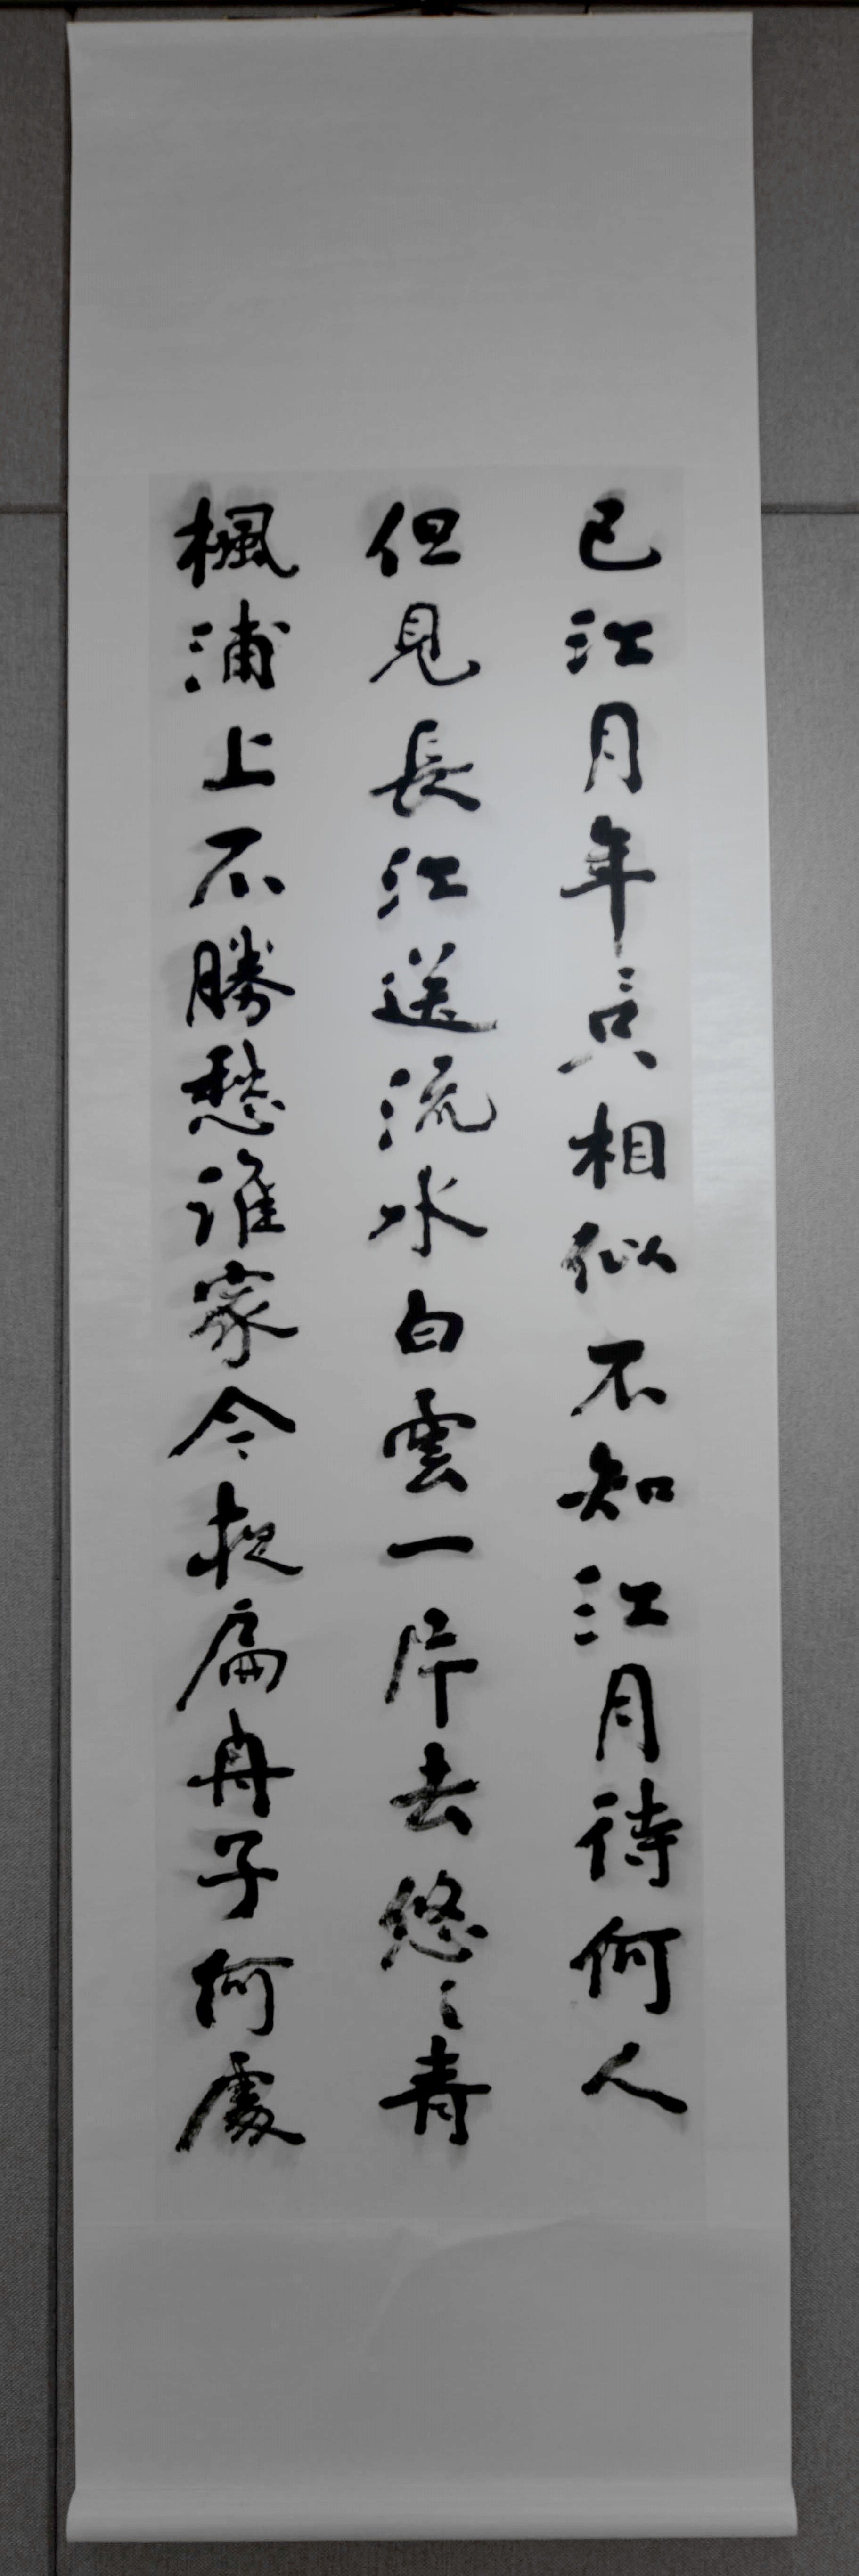 已江月年々只相似不知江月待何人
但見長江送流水白雲一片去悠々青
楓浦上不勝愁誰家今夜扁舟子何處